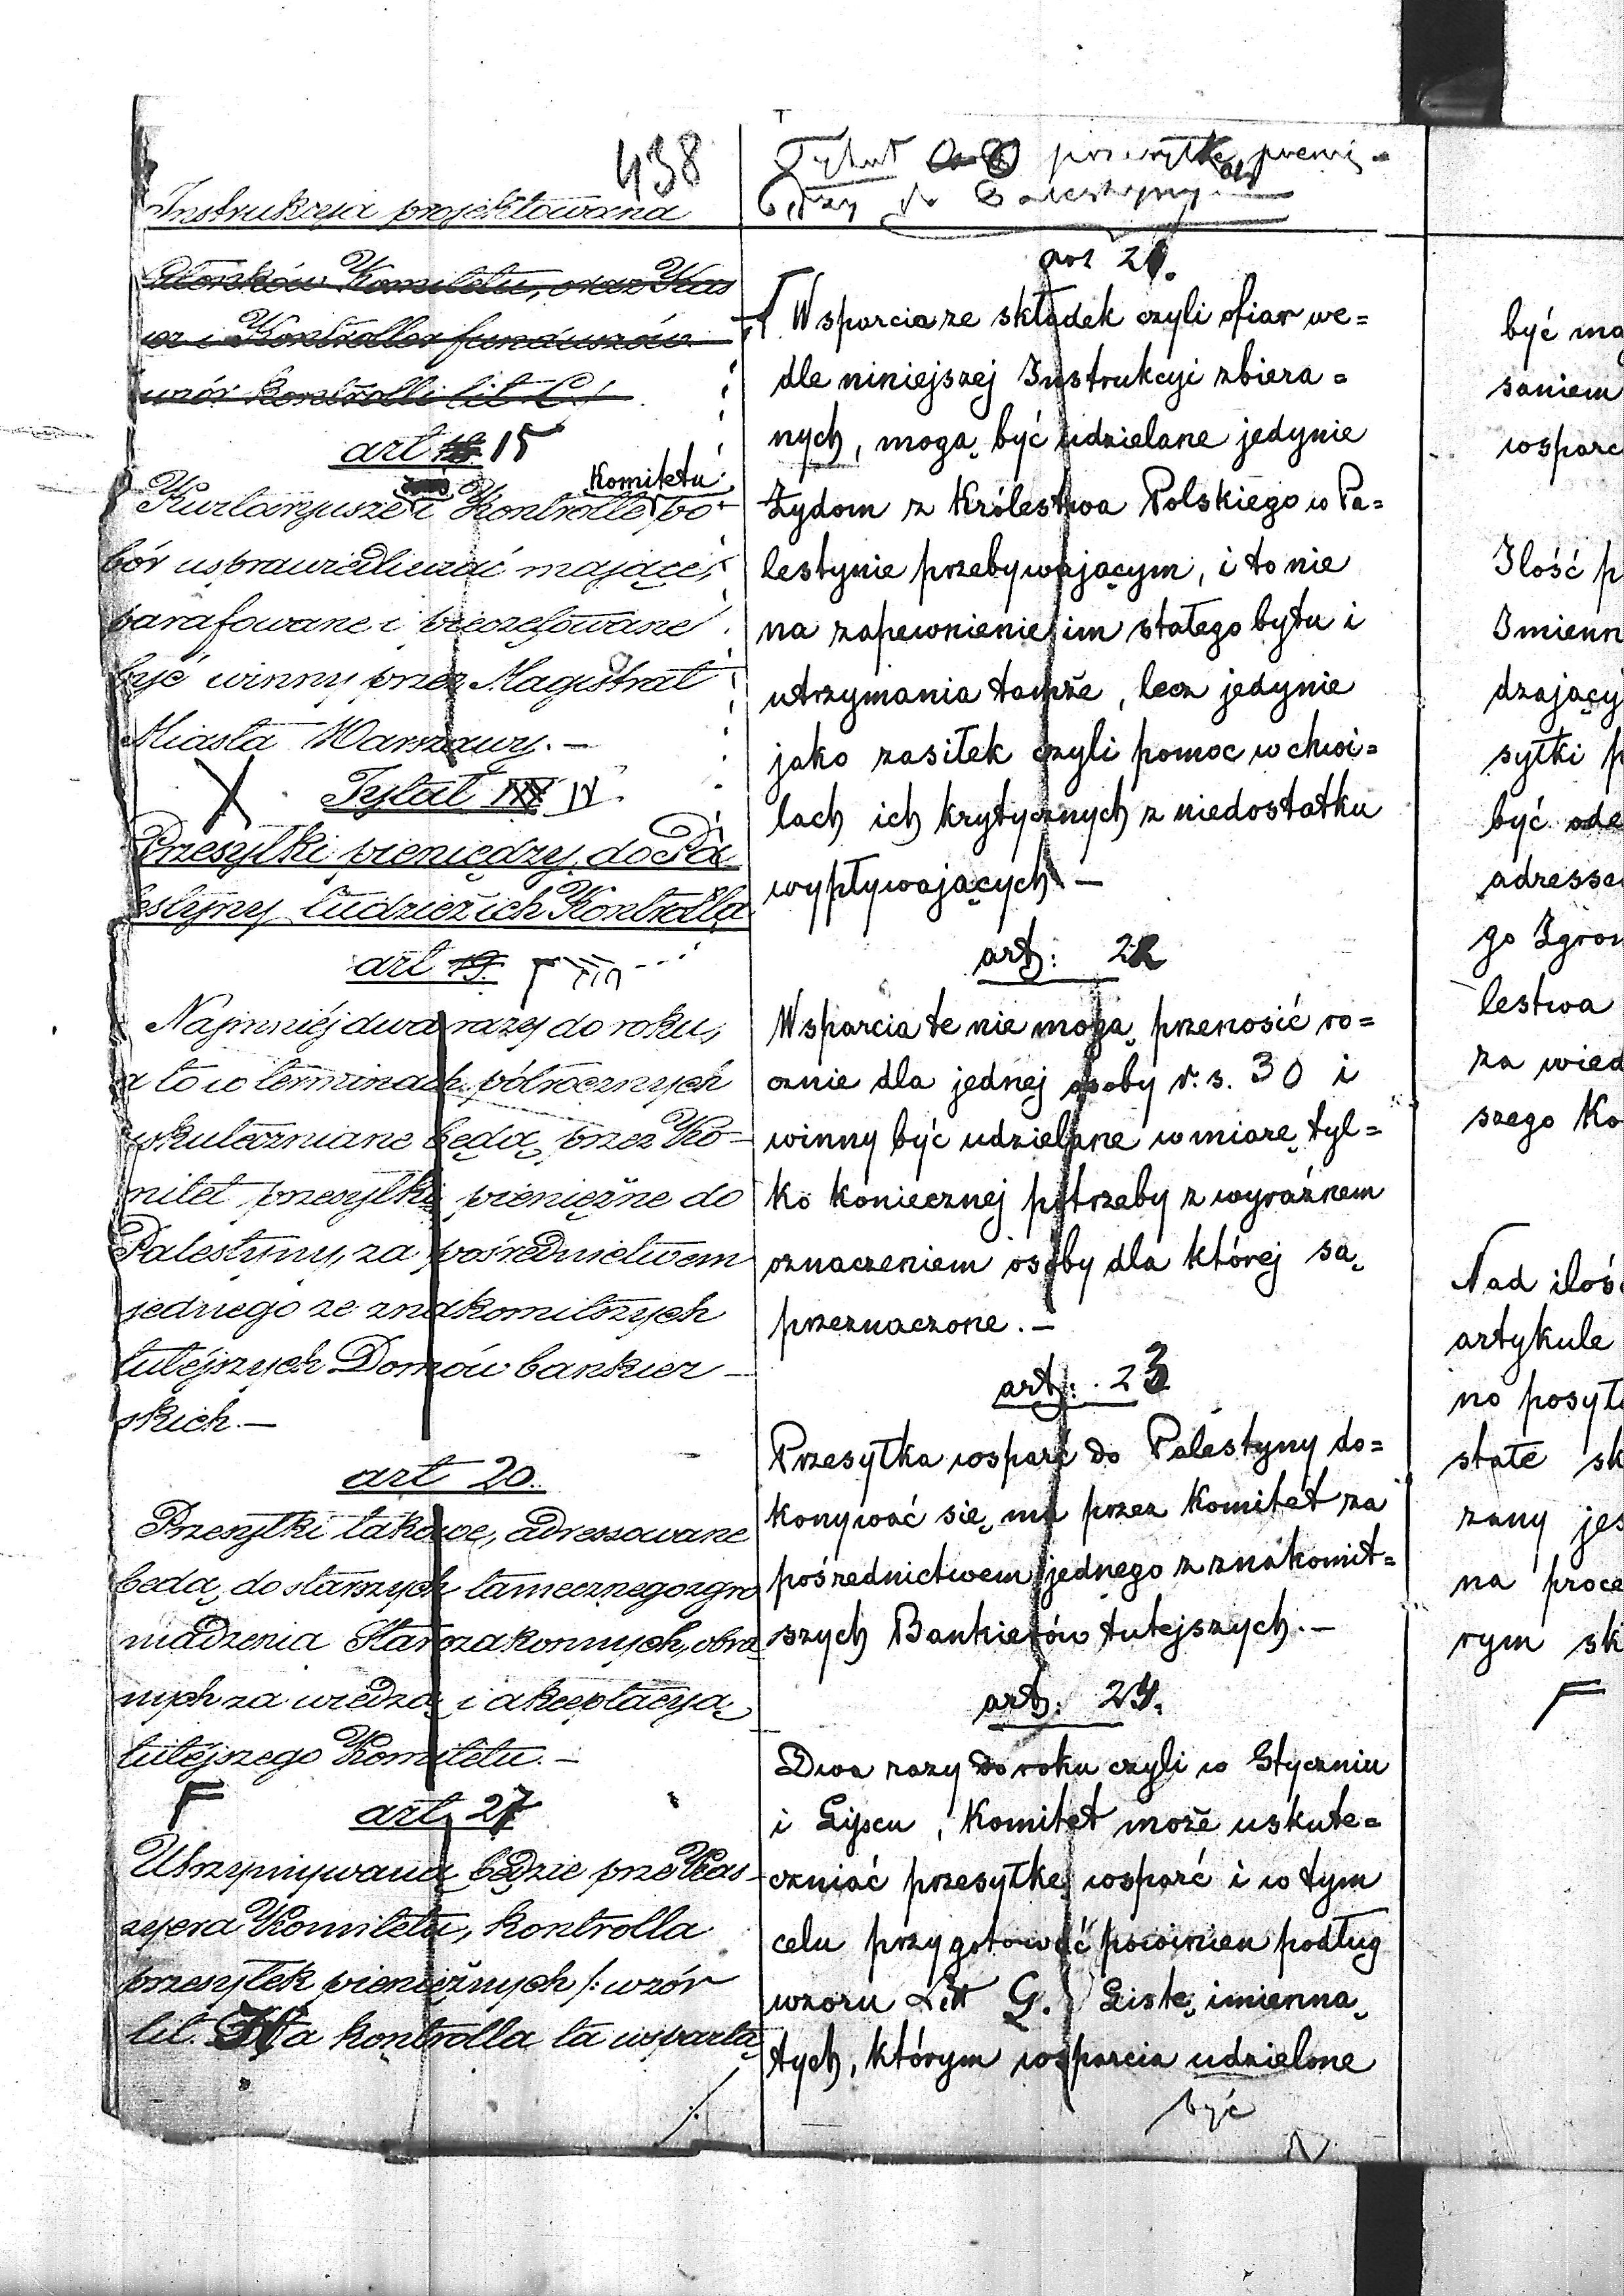 438
Instrukcyja projektowana
Członków Komitetu, oraz Kas
i Kontroller funduszów
wzór Kontrolli lit C
art 15
Komitetu
Kwitaryusze i Kontrolle po-
bór usprawiedliwiać mające,
parafowane i pieczętowane
być winny przez Magistrat
Miasta Warszawy. —
Tytuł IV
Przesyłki pieniędzy do Pa
lestyny tudzież ich Kontrolla
art 19.
Najmniéj dwa razy do roku,
a to w terminach półrocznych
uskuteczniane będą, przez Ko-
mitet przesyłki pieniężne do
Palestyny, za pośrednictwem
jednego ze znakomitszych
tutéjszych Domów bankier-
skich. —
art 20.
Przesyłki takowe, adressowane
będą do starszych tamecznego zgro
madzenia Starozakonnych, obra
nych za wiedzą i akceptacyą
tutéjszego Komitetu. —
art 21
Utrzymywaną będzie prze Kas-
syera Komitetu, kontrolla
przesyłek pieniężnych /: wzór
lit. H a kontrolla ta wspartą
Tytuł przesyłka pienię-
dzy do Palestyny
art 21.
Wsparcia ze składek czyli ofiar we=
dle niniejszej Instrukcyi zbiera=
nych, mogą być udzielane jedynie
Żydom z Królestwa Polskiego w Pa=
lestynie przebywającym, i to nie
na zapewnienie im stałego bytu i
utrzymania tamże, lecz jedynie
jako zasiłek czyli pomoc w chwi=
lach ich krytycznych z niedostatku
wypływających —
art: 22
Wsparcia te nie mogą przenosić ro=
cznie dla jednej osoby r. s. 30 i
winny być udzielane w miarę tyl=
ko koniecznej potrzeby z wyraźnem
oznaczeniem osoby dla której są
przeznaczone. —
art: 23
Przesyłka wsparć do Palestyny do=
konywać się ma przez Komitet za
pośrednictwem jednego z znakomit=
szych Bankierów tutejszych. —
art: 24.
Dwa razy do roku czyli w Styczniu
i Lipcu, Komitet może uskute=
czniać przesyłkę wsparć i w tym
celu przygotować powinien podług
wzoru Litt G. Listę imienną
tych, którym wsparcia udzielone
być
być ma
saniem
wsparc
Ilość p
Imienn
dzający
syłki p
być ode
adresse
go Zgrom
lestwa
za wied
szego Ko
Nad ilość
artykule
no posył
stałe sk
zany jes
na proce
rym sk